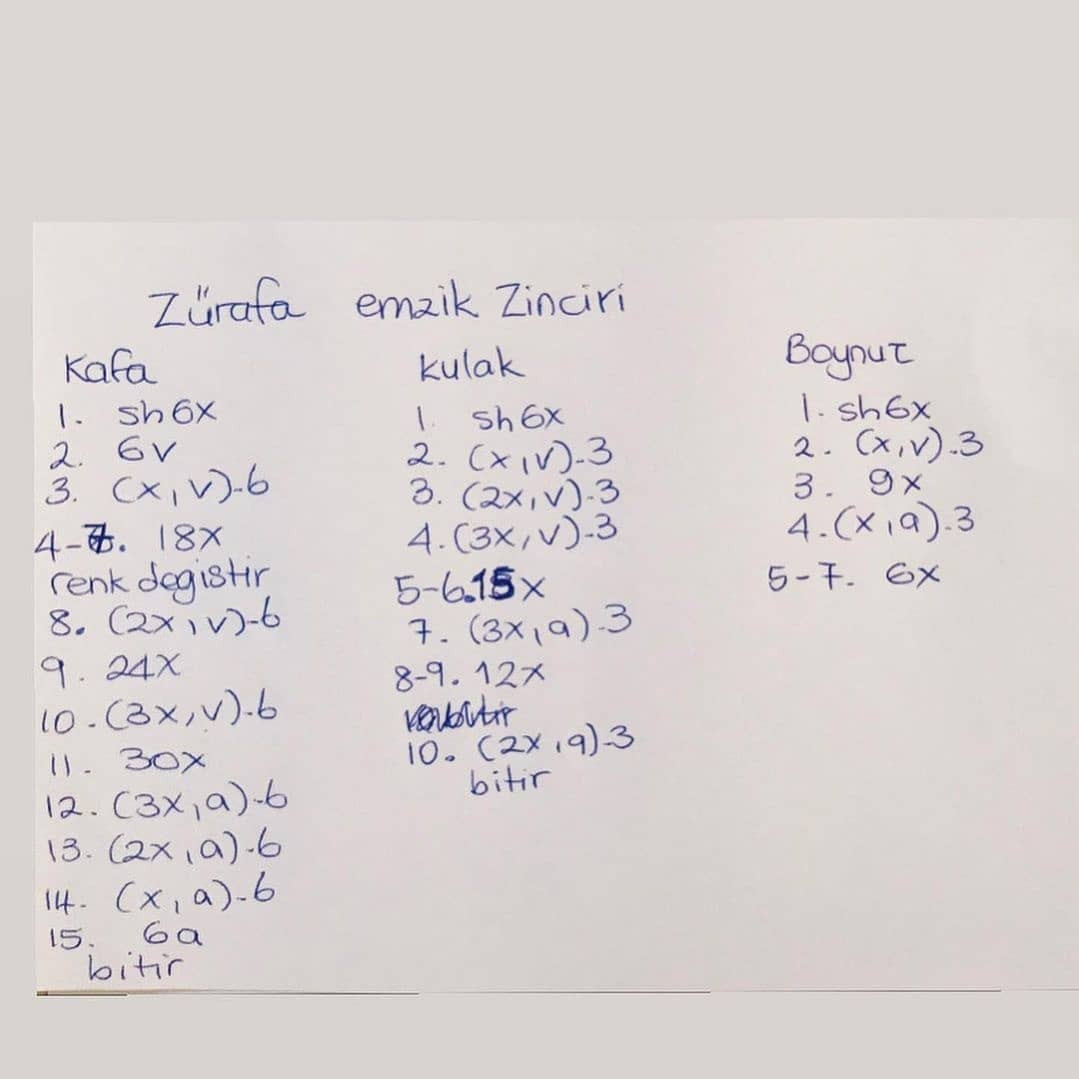 Zürafa emzik Zinciri
Kafa
1. sh6x
2. 6v
3. (x,v)-6
4-7. 18x
renk degistir
8. (2x,v)-6
9. 24x
10-(3x,v)-6
11- 30x
12. (3x,a)-6
13. (2x,a)-6
14- (x,a)-6
15. 6a
bitir
kulak
1. sh6x
2. (x,v)-3
3. (2x,v)-3
4.(3x,v)-3
5-6.15x
7. (3x,a)-3
8-9. 12x
10. (2x,a)-3
bitir
Boynuz
1. sh6x
2. (x,v)-3
3. 9x
4.(x,a)-3
5-7. 6x